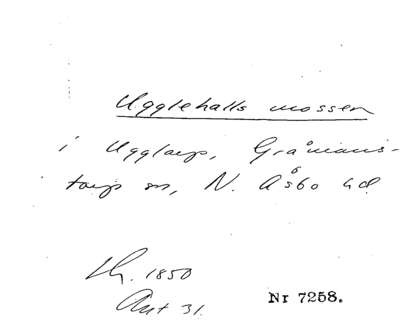 Ugglehalls mossen
i Ugglarp, Gråmans-
torps sn, N. Åsbo hd
Lh. 1850
Ant 31.
Nr 7258.